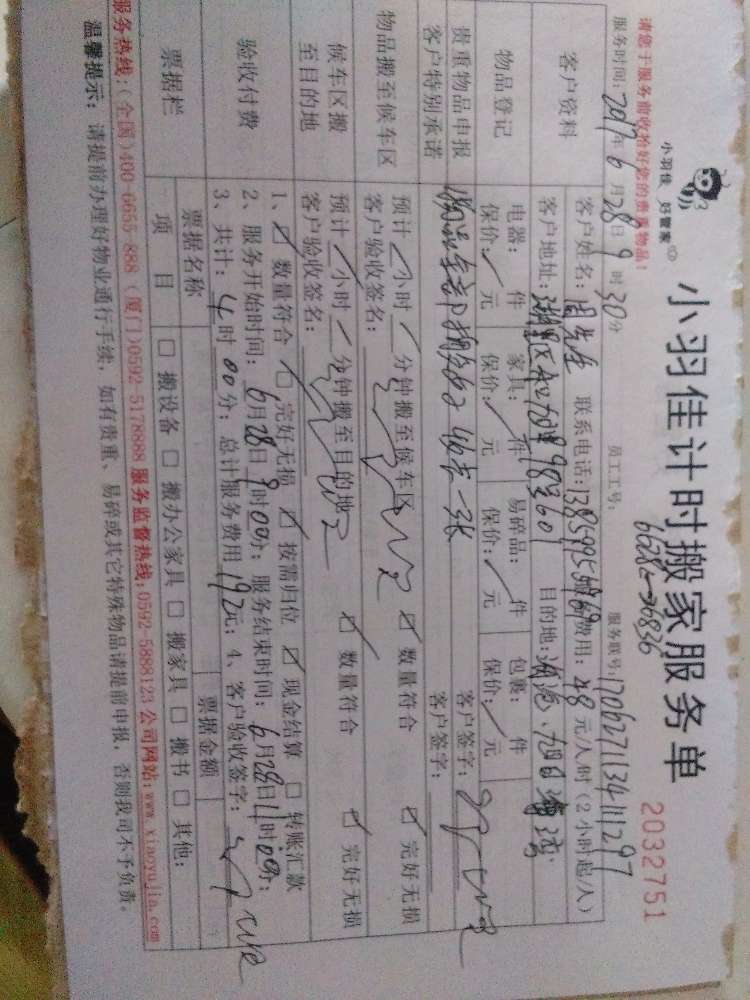 小羽佳 好管家
小羽佳计时搬家服务单
2032751
请您于服务前收拾好您的贵重物品!
员工工号: 6628
服务联号: 1706271134111297
服务时间: 2017年6月28日9时30分
客户资料
客户姓名: 周先生 联系电话: 服务费用: 48元/人/时(2小时起/人)
客户地址: 湖里区 98号601 目的地:
物品登记
电器: 件 家具: 件 易碎品: 件 包裹: 件
保价: 元 保价: 元 保价: 元 保价: 元
贵重物品申报
客户特别承诺
客户签字:
客户签字:
物品搬至候车区
预计 小时 分钟搬至候车区 ☑ 数量符合 ☑ 完好无损
客户验收签名:
候车区搬至目的地
预计 小时 分钟搬至目的地 ☑ 数量符合 ☑ 完好无损
客户验收签名:
验收付费
1、☑ 数量符合 ☑ 完好无损 ☑ 按需归位 ☑ 现金结算 □ 转账汇款
2、服务开始时间: 6月28日9时00分; 服务结束时间: 6月28日11时00分;
3、共计: 4时00分; 总计服务费用192元; 4、客户验收签字:
票据栏
票据名称 票据金额
项目 □ 搬设备 □ 搬办公家具 □ 搬家具 □ 搬书 □ 其他:
服务热线:(全国)400-6655-888 (厦门)0592-5178888 服务监督热线:0592-5888123 公司网站:www.xiaoyujia.com
温馨提示: 请提前办理好物业通行手续, 如有贵重、易碎或其它特殊物品请提前申报, 否则我司不予负责。